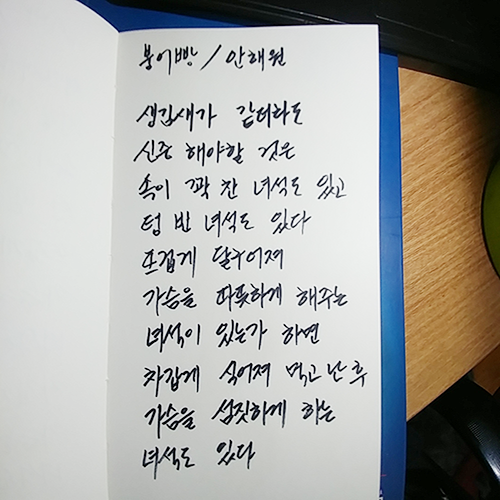 붕어빵 / 안해원
생김새가 같더라도
신중 해야할 것은
속이 꽉 찬 녀석도 있고
텅 빈 녀석도 있다
뜨겁게 달구어져
가슴을 따뜻하게 해주는
녀석이 있는가 하면
차갑게 식어져 먹고 난 후
가슴을 섬짓하게 하는
녀석도 있다